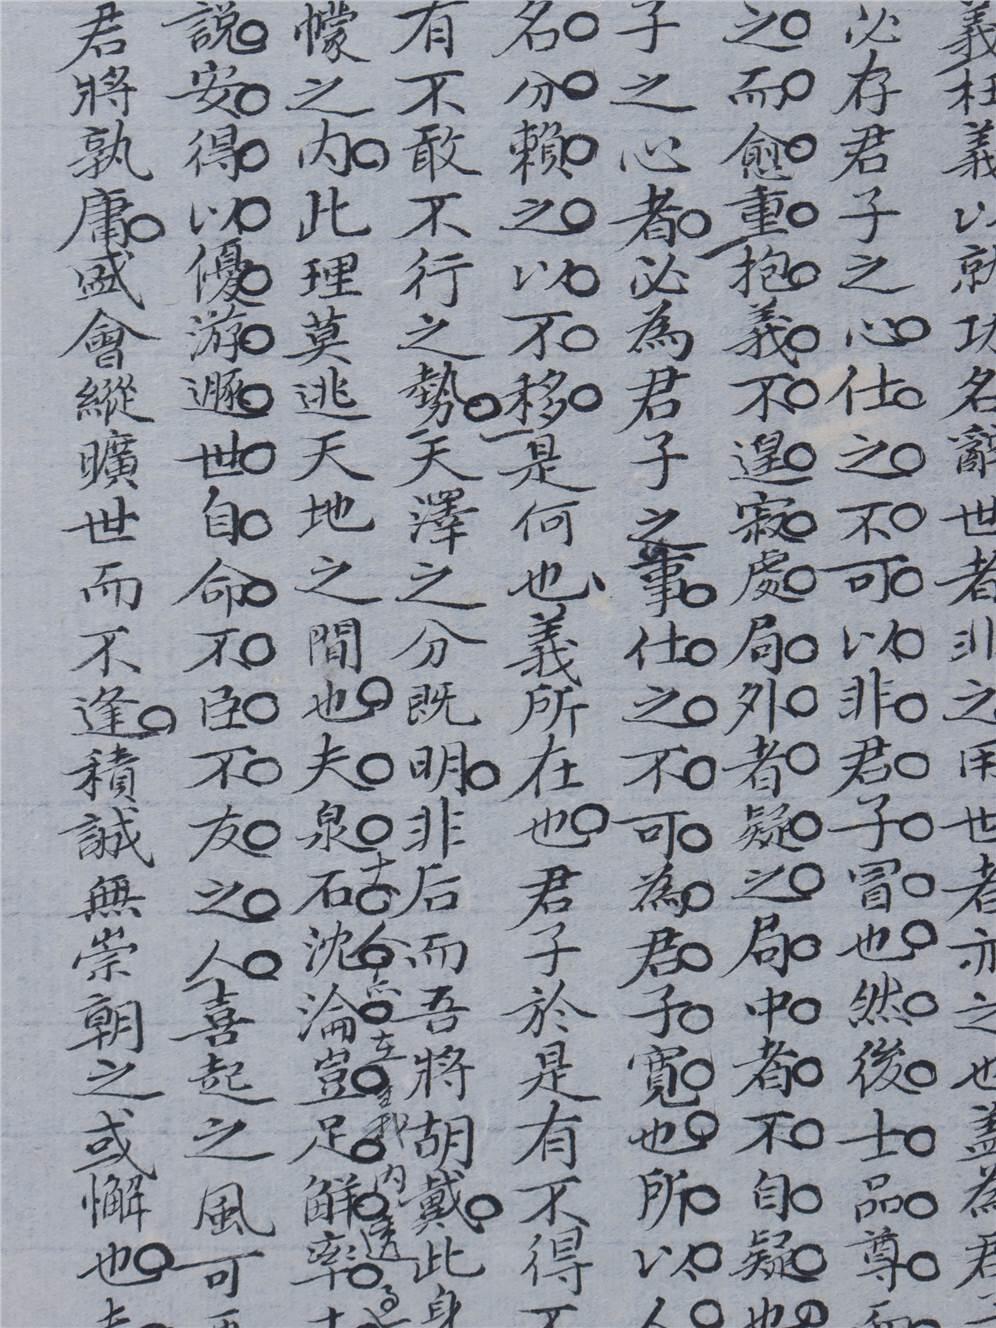 義在義以就功名辭世者非之用世者亦之也蓋為君
必存君子之心仕之不可以非君子冒也然後士品尊
之而愈重抱義不遑寂處局外者疑之局中者不自疑也
子之心者必為君子之事仕之不可為君子寬也所以人
名分賴之以不移是何也義所在也君子於是有不得不
有不敢不行之勢天澤之分既明非后而吾將胡戴此身
幪之內此理莫逃天地之間也夫泉石沈淪豈足鮮率土
說安得以優游遯世自命不臣不友之人喜起之風可再
君將孰庸盛會縱曠世而不逢積誠無崇朝之或懈也夫